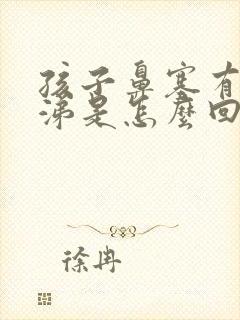 孩子鼻塞有
涕是怎麼回
徐冉